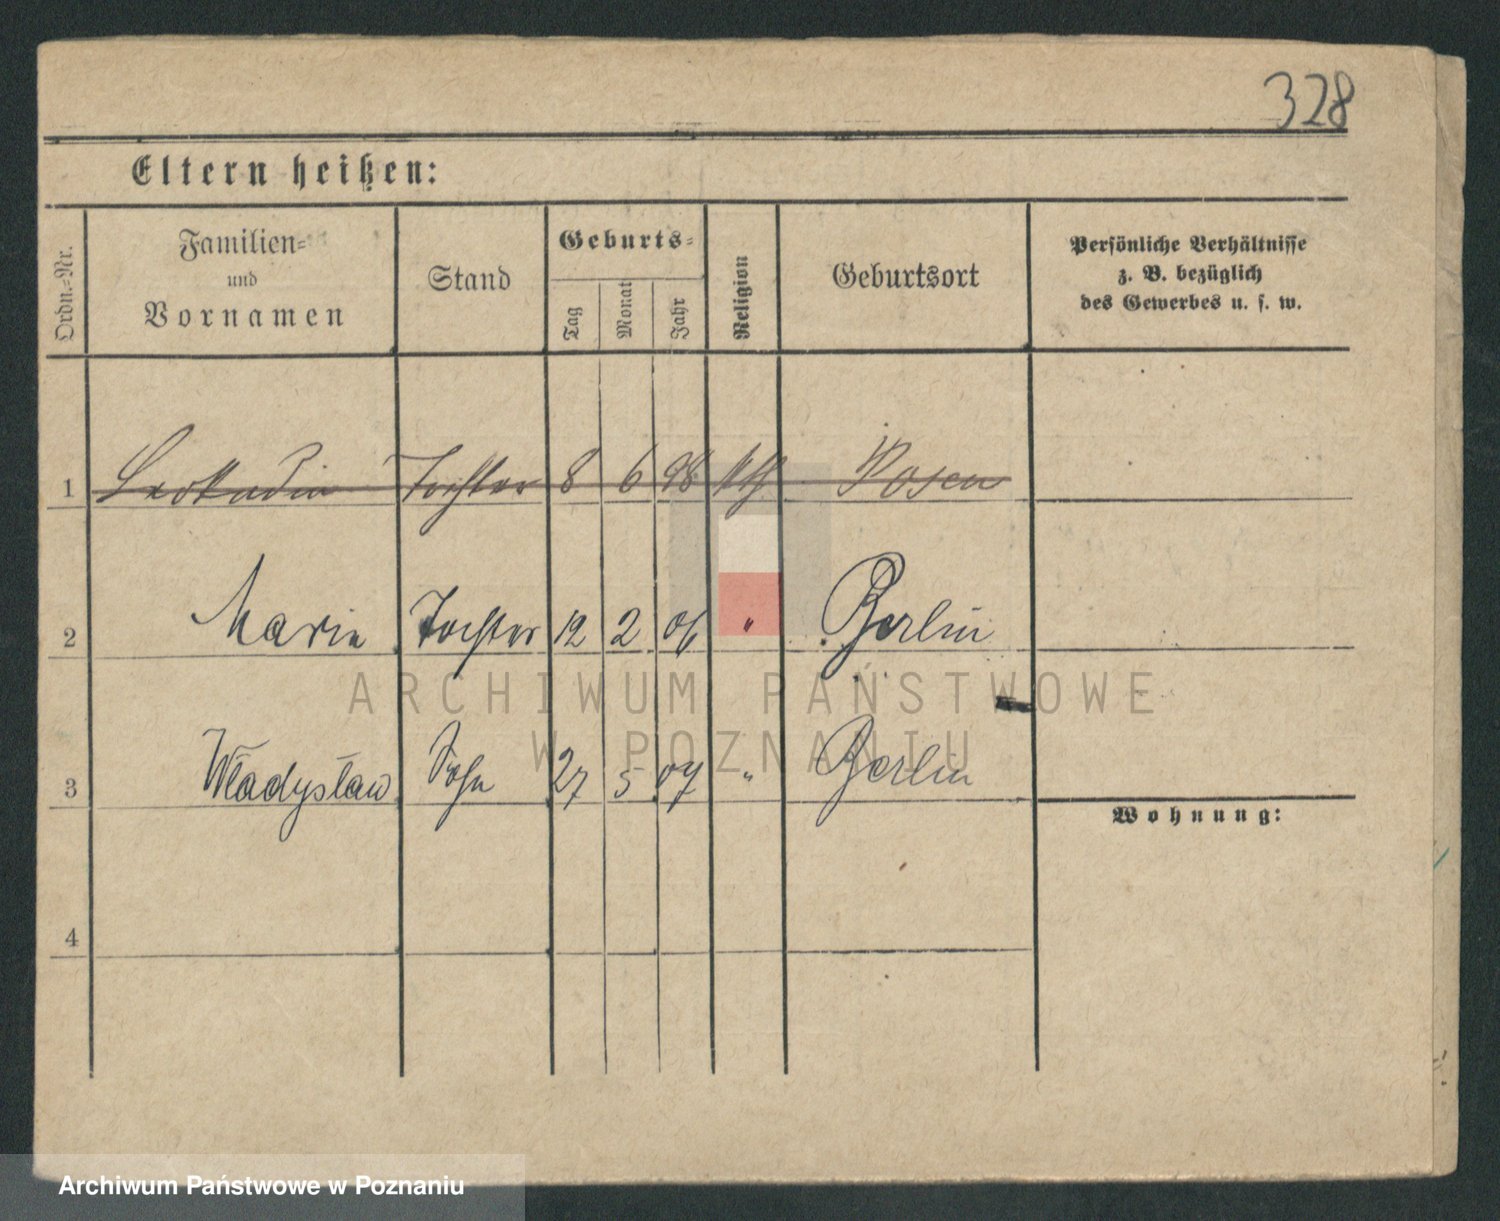 328
Eltern heißen:
Ordn.-Nr.
Familien-
und
Vornamen
Stand
Geburts-
Tag
Monat
Jahr
Religion
Geburtsort
Persönliche Verhältnisse
z. B. bezüglich
des Gewerbes u. s. w.
1 Leokadia Tochter 8 6 98 kth Posen
2 Marie Tochter 12 2 06 " Berlin
ARCHIWUM PAŃSTWOWE
W POZNANIU
3 Władysław Sohn 27 5 07 " Berlin
Wohnung:
4
Archiwum Państwowe w Poznaniu